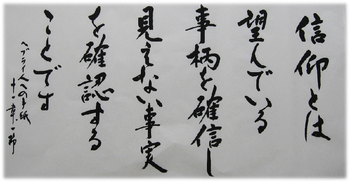 信仰とは
望んでいる
事柄を確信し
見えない事実
を確認する
ことです
ヘブライ人への手紙
十一章一節